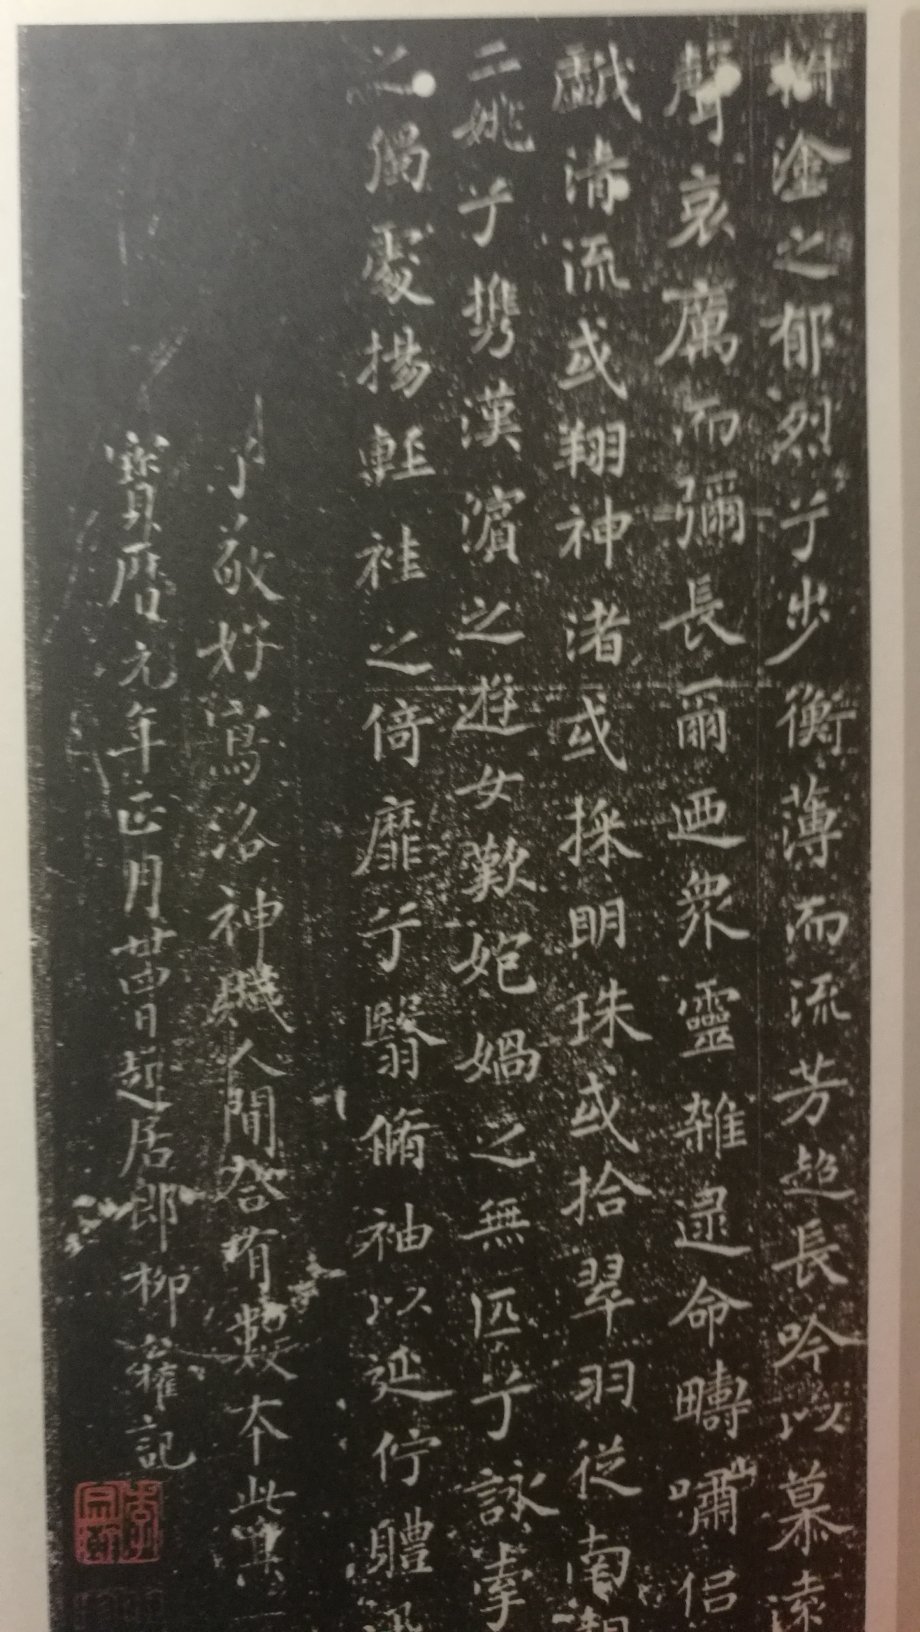 塗之郁烈兮步衡薄而流芳超長吟以慕遠
聲哀厲而彌長爾迺衆靈雜遝命疇嘯侶
戲清流或翔神渚或採明珠或拾翠羽從南湘
二姚兮攜漢濱之遊女歎匏媧之無匹兮詠牽
之獨處揚輕袿之倚靡兮翳脩袖以延佇體迅
子敬好寫洛神賦人間合有數本此其一
寶曆元年正月廿四日起居郎柳公權記